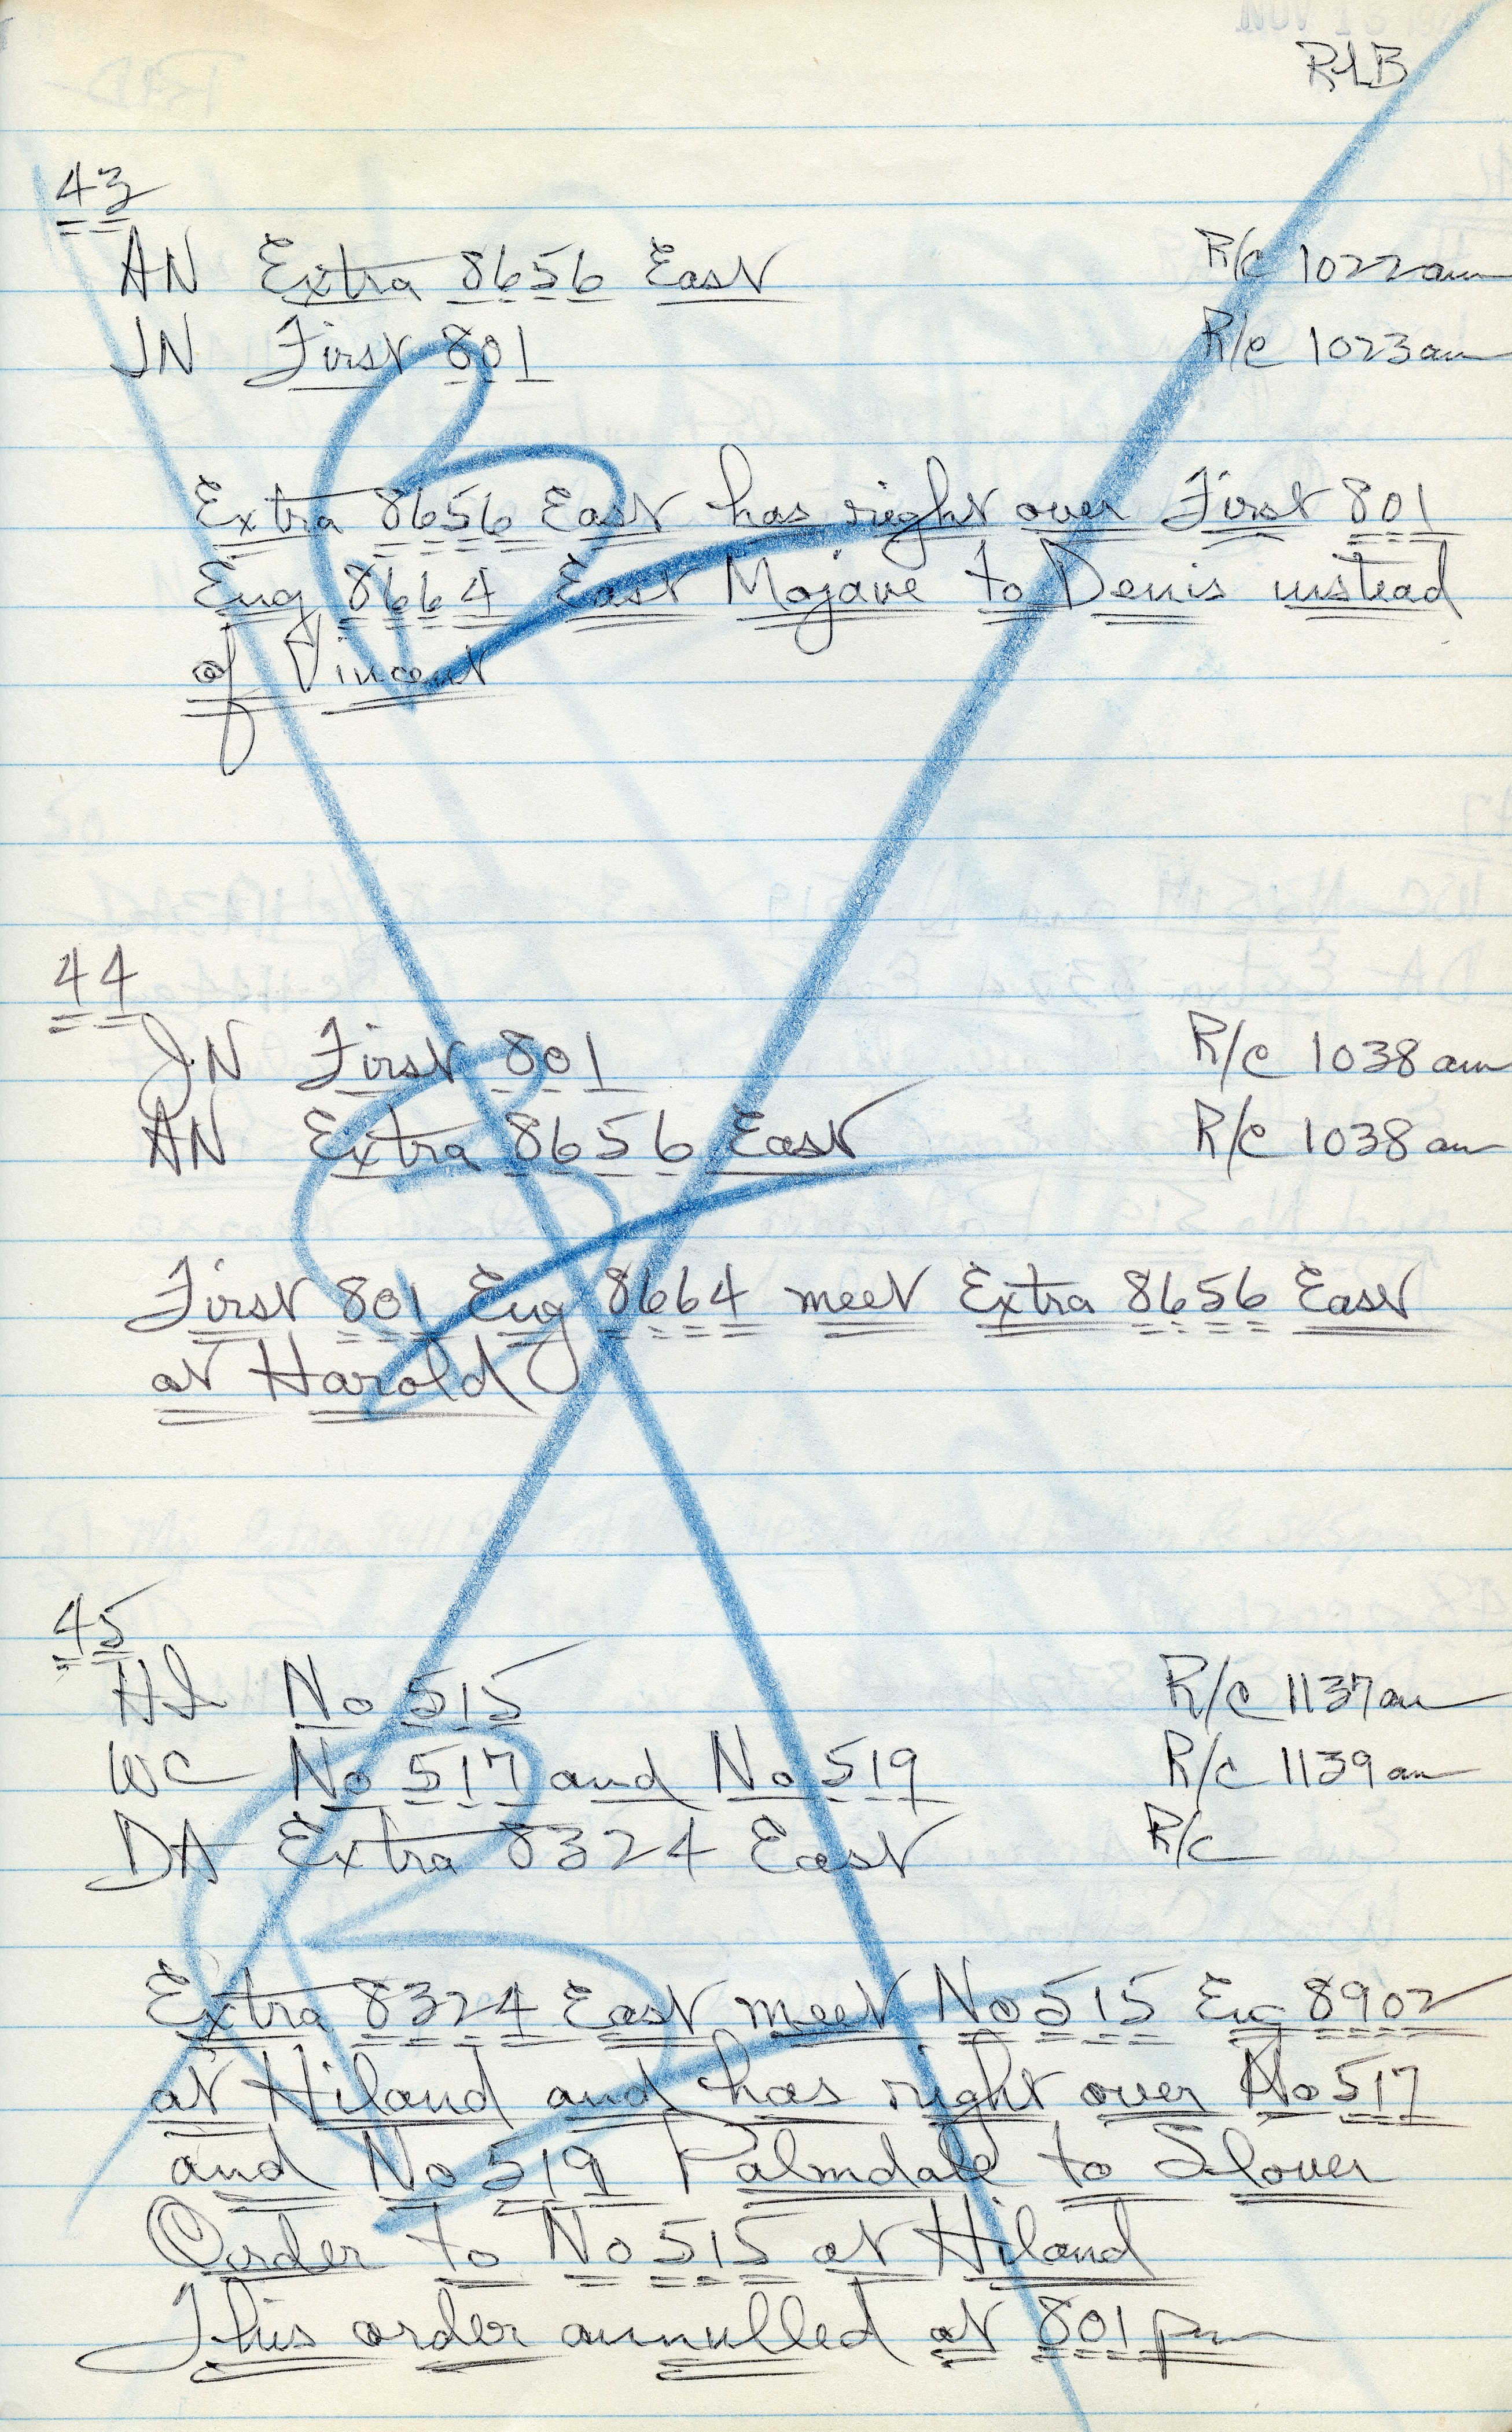 RLB
43
AN Extra 8656 East R/c 1022am
JN First 801 R/c 1023am
Extra 8656 East has right over First 801
Eng 8664 East Mojave to Denis instead
of Vincent
44
JN First 801 R/c 1038am
AN Extra 8656 East R/c 1038am
First 801 Eng 8664 meet Extra 8656 East
at Harold
45
HI No 515 R/c 1137am
WC No 517 and No 519 R/c 1139am
DA Extra 8324 East R/c
Extra 8324 East meet No 515 Eng 8902
at Hiland and has right over No 517
and No 519 Palmdale to Slover
Order to No 515 at Hiland
This order annulled at 801pm